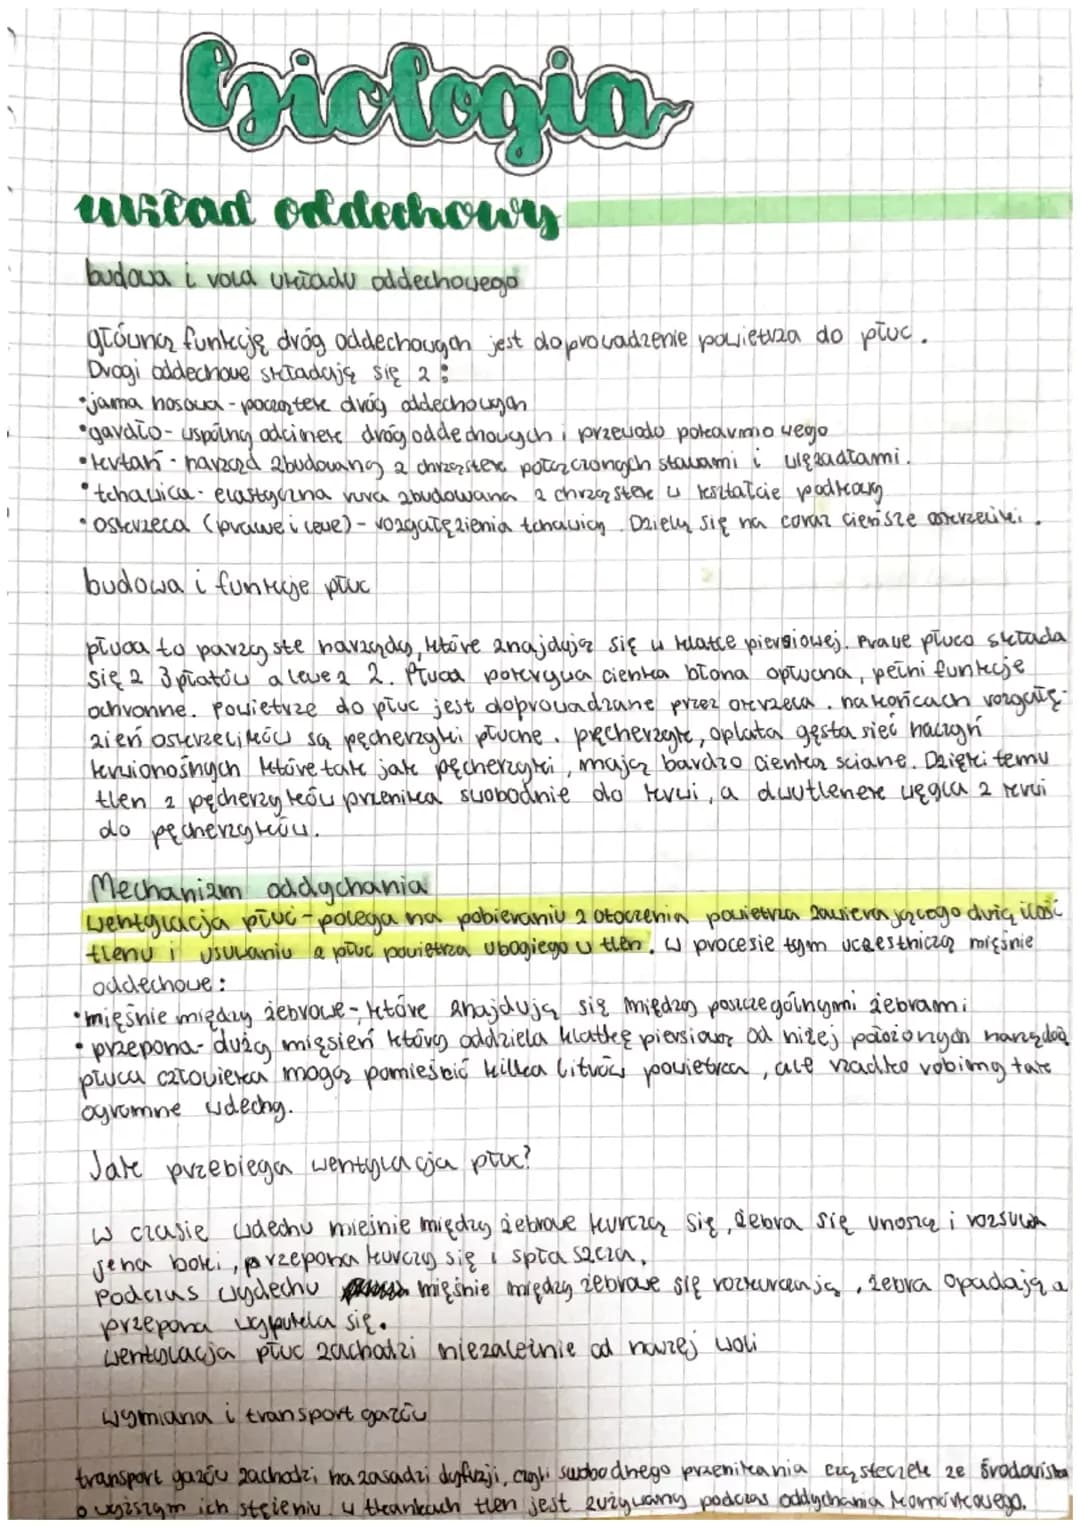 biologia
układ oddechowy
budowa i rola układu oddechowego
główną funkcją dróg oddechowych jest doprowadzenie powietrza do płuc.
Drogi oddechowe składają się z :
•jama nosowa - początek dróg oddechowych
•gardło- wspólny odcinek dróg oddechowych i przewodo pokarmowego
•krtań - narząd zbudowany z chrząstek połączonych stawami i więzadłami.
•tchawica- elastyczna rura zbudowana z chrząstek w kształcie podkowy
•oskrzeca (prawe i lewe) - rozgałęzienia tchawicy. Dzielą się na coraz cieńsze oskrzeliki.
budowa i funkcje płuc
płuca to parzyste narządy, które znajdują się w klatce piersiowej. Prawe płuco składa
się z 3 płatów a lewe z 2. Płuca pokrywa cienka błona opłucna, pełni funkcje
ochronne. Powietrze do płuc jest doprowadzane przez okrzeca. na końcach rozgałę-
zień oskrzelików są pęcherzyki płucne. pęcherzyk, oplata gęsta sieć naczyń
krwionośnych które tak jak pęcherzyki, mają bardzo cienką sciane. Dzięki temu
tlen z pęcherzyków przenika swobodnie do krwi, a dwutlenek węgla z krwi
do pęcherzyków.
Mechanizm oddychania
wentylacja płuc - polega na pobieraniu z otoczenia powietrza zawierającego dużą ilość
tlenu i usuwaniu z płuc powietrza ubogiego w tlen. W procesie tym uczestniczą mięśnie
oddechowe:
•mięśnie między żebrowe - które znajdują się między poszczególnymi żebrami
•przepona- duży mięsień który oddziela klatkę piersiową od niżej położonych narządów
płuca człowieka mogą pomieścić kilka litrów powietrza, ale rzadko robimy tak
ogromne wdechy.
Jak przebiega wentylacja płuc?
w czasie wdechu mieśnie między żebrowe kurczą się, żebra się unoszą i rozsuwa
ją na boki, przepona kurczy się i spłaszcza,
Podczas wydechu mięśnie między żebrowe się rozkurczają, żebra opadają a
przepona wypukla się.
wentylacja płuc zachodzi niezależnie od naszej woli
wymiana i transport gazów
transport gazów zachodzi na zasadzi dyfuzji, czyli swobodnego przenikania cząsteczek ze środowiska
o wyższym ich stężeniu. w tkankach tlen jest zużywany podczas oddychania komórkowego.